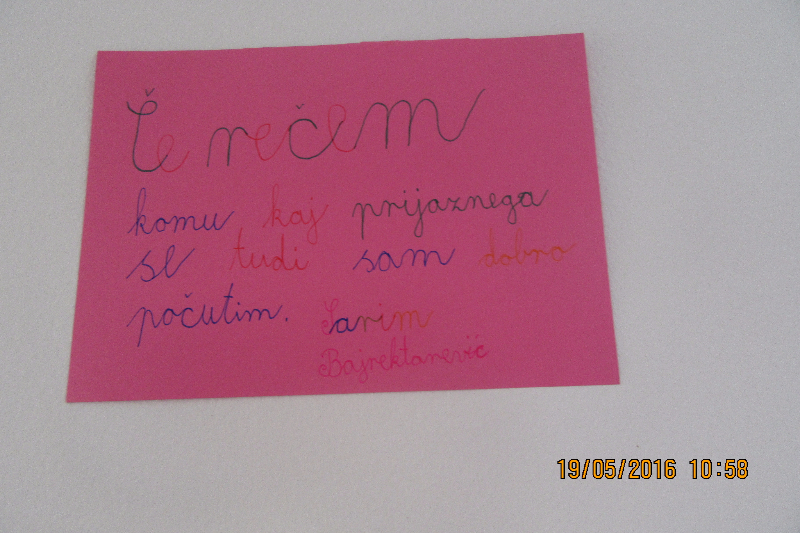 Če rečem
komu kaj prijaznega
se tudi sam dobro
počutim. Sarim
Bajrektarević
19/05/2016 10:58